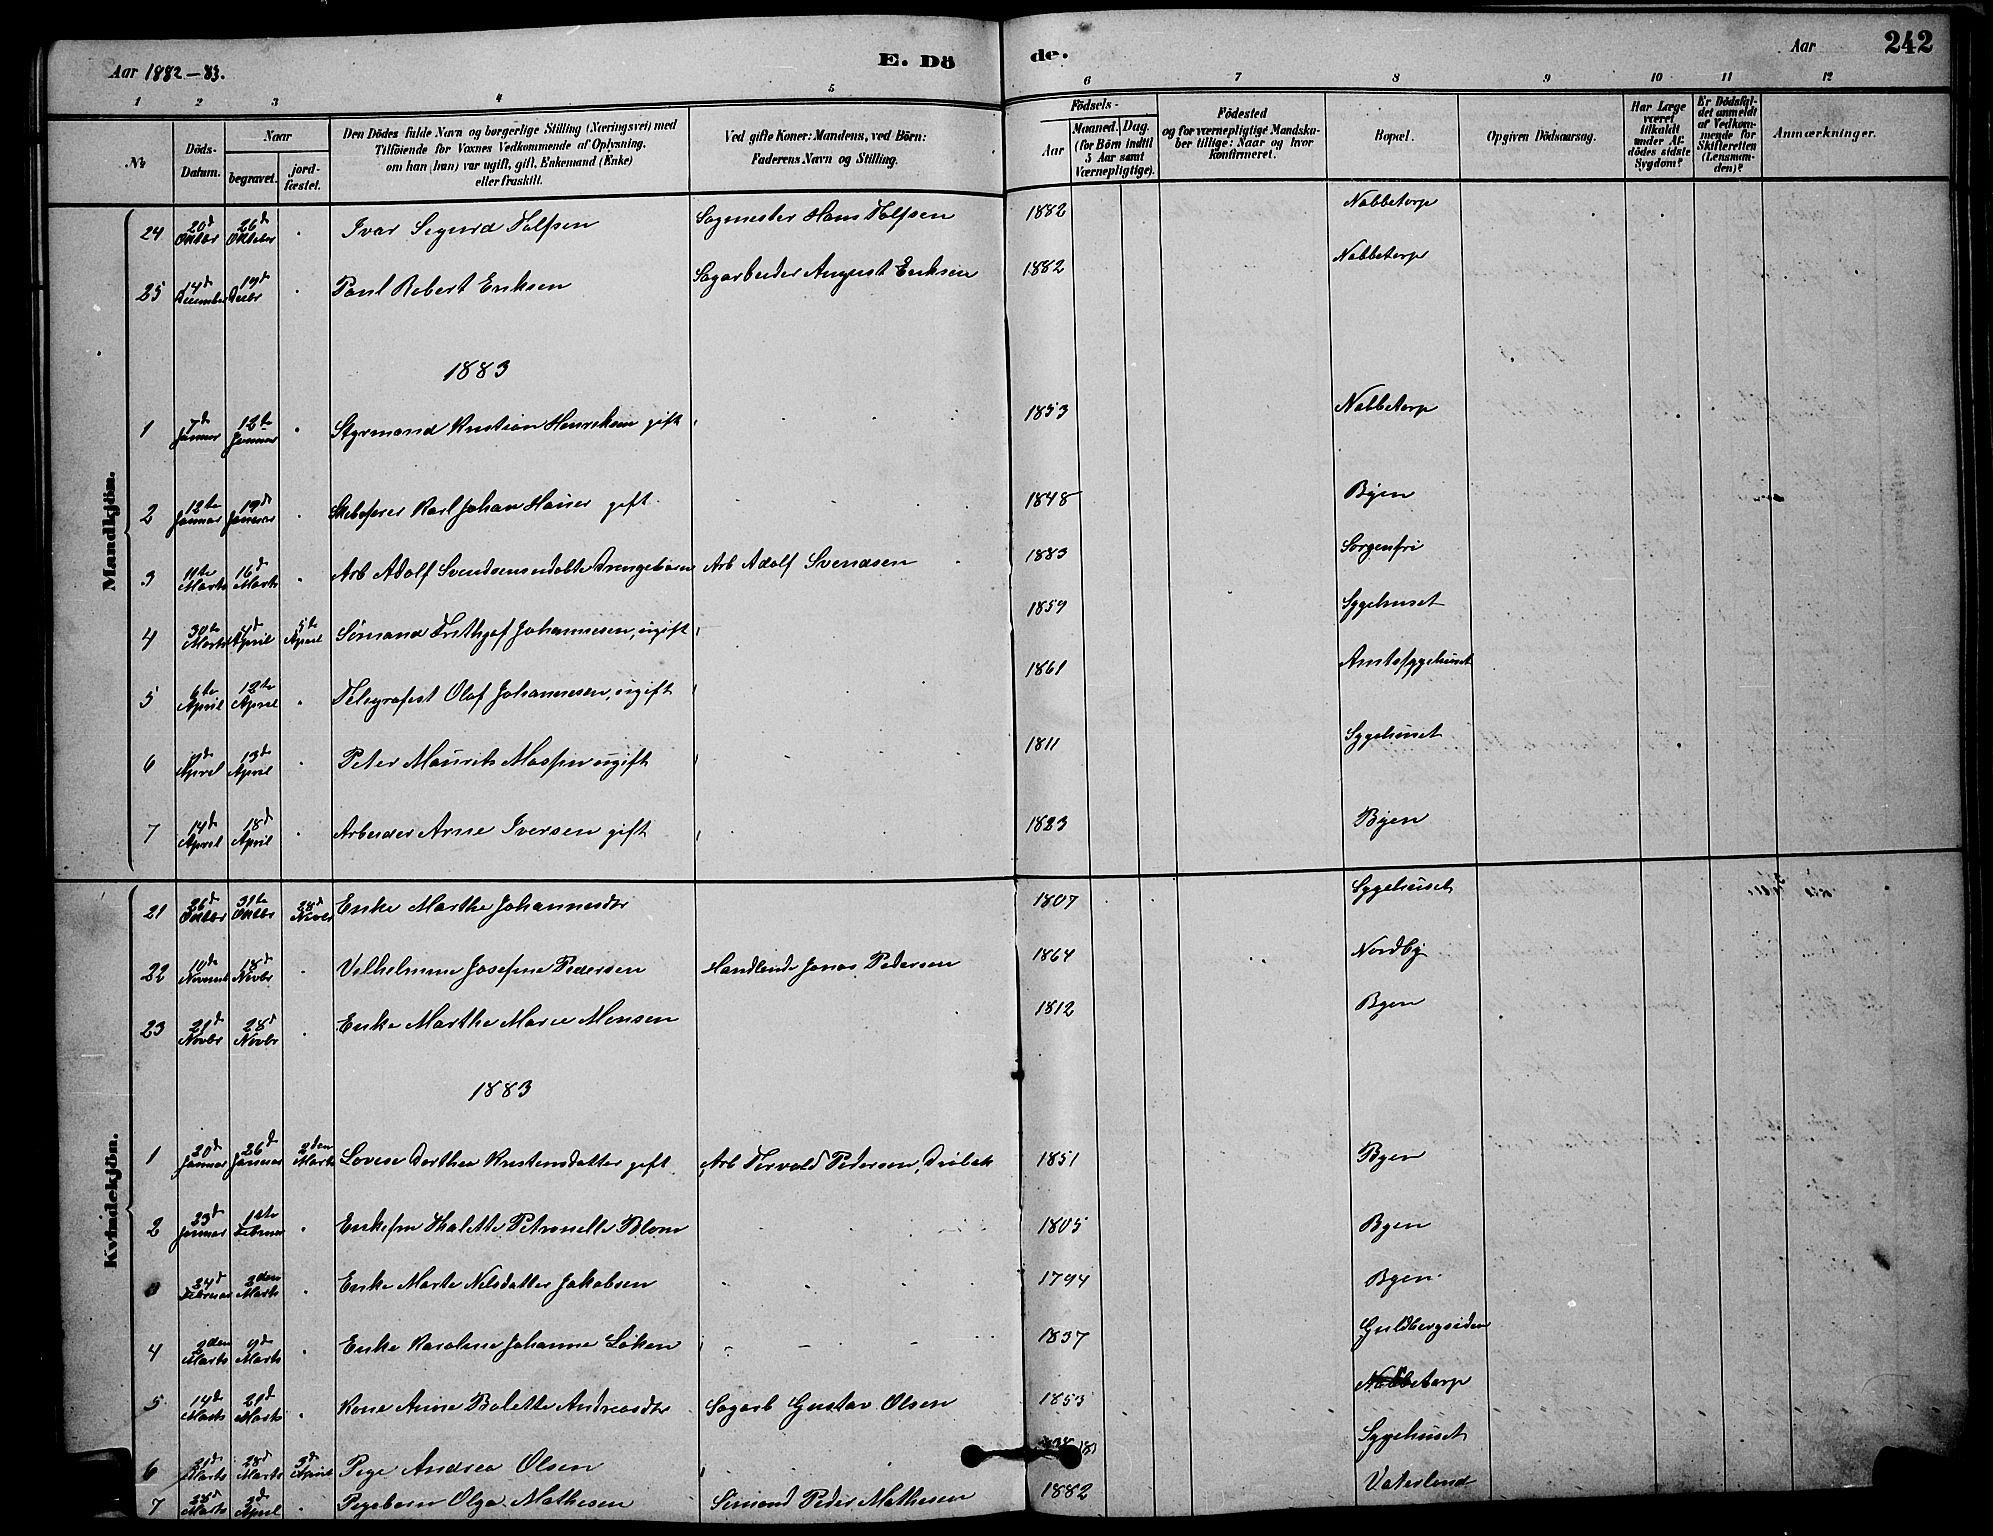 Aar 1882-83.
E. Dö
de.
Aar
242
1 2 3 4 5 6 7 8 9 10 11 12
No
Döds-Datum.
Naar
begravet.
jord-fæstet.
Den Dödes fulde Navn og borgerlige Stilling (Næringsvei) med
Tilföiende for Voxnes Vedkommende af Oplysning,
om han (hun) var ugift, gift, Enkemand (Enke)
eller fraskilt.
Ved gifte Koner: Mandens, ved Börn:
Faderens Navn og Stilling.
Födsels-
Aar
Maaned. Dag.
(for Börn indtil
5 Aar samt
Værnepligtige).
Födested
og for værnepligtige Mandska-
ber tillige: Naar og hvor
konfirmeret.
Bopæl.
Opgiven Dödsaarsag.
Har Læge
været
tilkaldt
under Af-
dödes sidste
Sygdom?
Er Dödsfal-
det anmeldt
af Vedkom-
mende for
Skifteretten
(Lensman-
den)?
Anmærkninger.
Mandkjön.
24 20d Oktbr 26d Oktober Ivar Sigurd Tolfsen Sagmester Hans Tolfsen 1882 Nabbetorp
25 14d December 19d Decbr Paul Robert Eriksen Sagarbeider August Eriksen 1882 Nabbetorp
1883
1 7d Januar 12te Januar Styrmand Kristian Henriksen gift 1853 Nabbetorp
2 12te Januar 19d Januar Skibsfører Karl Johan Hauer gift 1848 Byen
3 11te Marts 16d Marts Arb Adolf Svendsens udøbte Drengebarn Arb Adolf Svendsen 1883 Sorgenfri
4 30te Marts 4d April 5te April Sømand Frithjof Johannesen, ugift 1859 Sygehuset
5 6te April 12te April Telegrafist Olaf Johannesen, ugift 1861 Amtssygehuset
6 9d April 13d April Peter Maurits ugift 1811 Sygehuset
7 14d April 18d April Arbeider Arne Iversen gift 1823 Byen
Kvindekjön.
21 26d Oktbr 31te Oktbr 28d Novbr Enke Marthe Johannesdtr 1807 Sygehuset
22 10d Novemb 18d Novbr Vilhelmine Josefine Pedersen Handlende Jonas Pedersen 1864 Nordby
23 21d Novbr 28d Novbr Enke Marthe Marie Monsen 1812 Byen
1883
1 20d Januar 26d Januar 2den Marts Lovise Dorthea Kristensdatter gift Arb Torvald Pedersen, Drøbak 1851 Byen
2 23d Januar 1ste Februar Enkefru Halette Petronelle Blom 1805 Byen
3 24d Februar 2den Marts Enke Marte Nilsdatter Jakobsen 1794 Byen
4 2den Marts 9d Marts Enke Karoline Johanne Løken 1837 Guldbergsiden
5 14d Marts 21d Marts Kone Anne Bolette Andreasdtr Sagarb Gustav Olsen 1853 Nabbetorp
6 21d Marts 28d Marts 3d April Pige Andrea Olsen Sygehuset
7 28d Marts 2d April Pigebarn Olga Mathesen Sømand Peder Mathesen 1882 Vaterland